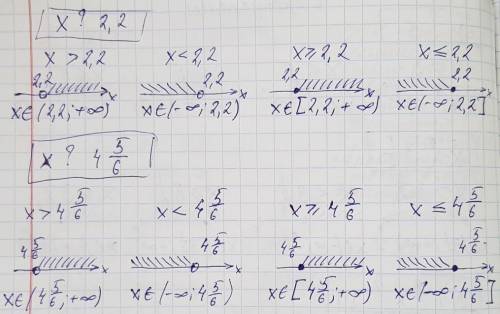 x ? 2,2
x > 2,2 x < 2,2 x ≥ 2,2 x ≤ 2,2
2,2 x 2,2 x 2,2 x 2,2 x
x∈(2,2;+∞) x∈(-∞;2,2) x∈[2,2;+∞) x∈(-∞;2,2]
x ? 4 5/6
x > 4 5/6 x < 4 5/6 x ≥ 4 5/6 x ≤ 4 5/6
4 5/6 x 4 5/6 x 4 5/6 x 4 5/6 x
x∈(4 5/6;+∞) x∈(-∞;4 5/6) x∈[4 5/6;+∞) x∈(-∞;4 5/6]